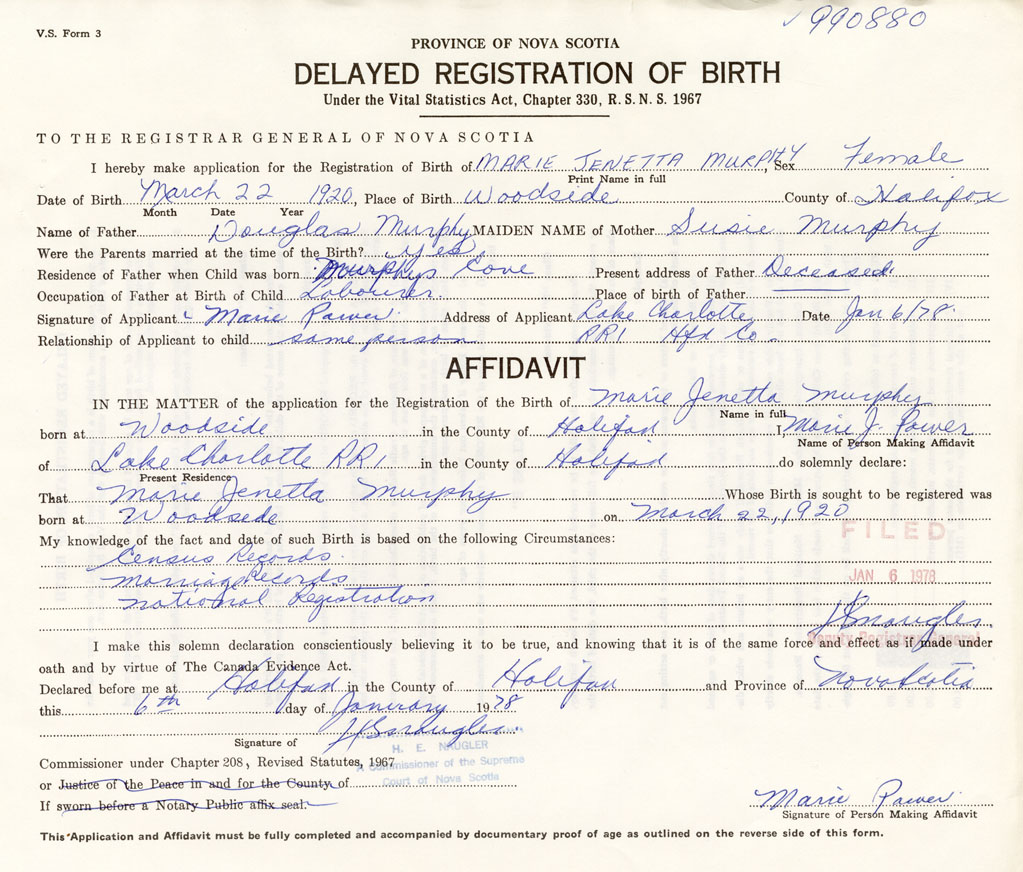 990880
V.S. Form 3
PROVINCE OF NOVA SCOTIA
DELAYED REGISTRATION OF BIRTH
Under the Vital Statistics Act, Chapter 330, R.S.N.S. 1967
TO THE REGISTRAR GENERAL OF NOVA SCOTIA
I hereby make application for the Registration of Birth of MARIE JENETTA MURPHY, Sex Female
Print Name in full
Date of Birth March 22 1920, Place of Birth Woodside County of Halifax
Month Date Year
Name of Father Douglas Murphy MAIDEN NAME of Mother Susie Murphy
Were the Parents married at the time of the Birth? yes.
Residence of Father when Child was born Murphys Cove Present address of Father Deceased.
Occupation of Father at Birth of Child Labourer. Place of birth of Father
Signature of Applicant Marie Power Address of Applicant Lake Charlotte Date Jan 6/78.
Relationship of Applicant to child same person RR1 Hfx Co.
AFFIDAVIT
IN THE MATTER of the application for the Registration of the Birth of Marie Jenetta Murphy
Name in full
born at Woodside in the County of Halifax I, Marie J. Power
Name of Person Making Affidavit
of Lake Charlotte RR1 in the County of Halifax do solemnly declare:
Present Residence
That Marie Jenetta Murphy Whose Birth is sought to be registered was
born at Woodside on March 22, 1920
My knowledge of the fact and date of such Birth is based on the following Circumstances:
FILED
Census Records.
JAN 6 1978
Marriage Records
National Registration
Deputy Registrar General
I make this solemn declaration conscientiously believing it to be true, and knowing that it is of the same force and effect as if made under
oath and by virtue of The Canada Evidence Act.
Declared before me at Halifax in the County of Halifax and Province of Nova Scotia
this 6th day of January 1978
Signature of
H. E. NAUGLER
Commissioner under Chapter 208, Revised Statutes, 1967
A Commissioner of the Supreme
or Justice of the Peace in and for the County of
Court of Nova Scotia
If sworn before a Notary Public affix seal.
Marie Power
Signature of Person Making Affidavit
This Application and Affidavit must be fully completed and accompanied by documentary proof of age as outlined on the reverse side of this form.